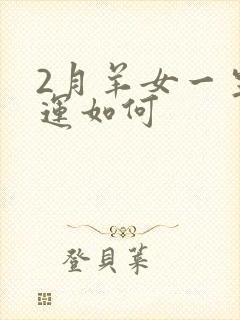 2月羊女一生
運如何
登貝葉